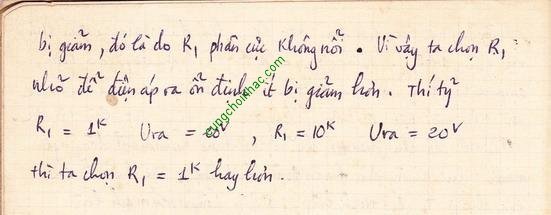 bị giảm, đó là do R₁ phân cực không nổi. Vì vậy ta chọn R₁
nhỏ để điện áp ra ổn định ít bị giảm hơn. Thí tỷ
R₁ = 1ᴷ Ura = 0ᵛ , R₁ = 10ᴷ Ura = 20ᵛ
thì ta chọn R₁ = 1ᴷ hay hơn.
cungchoinhac.com